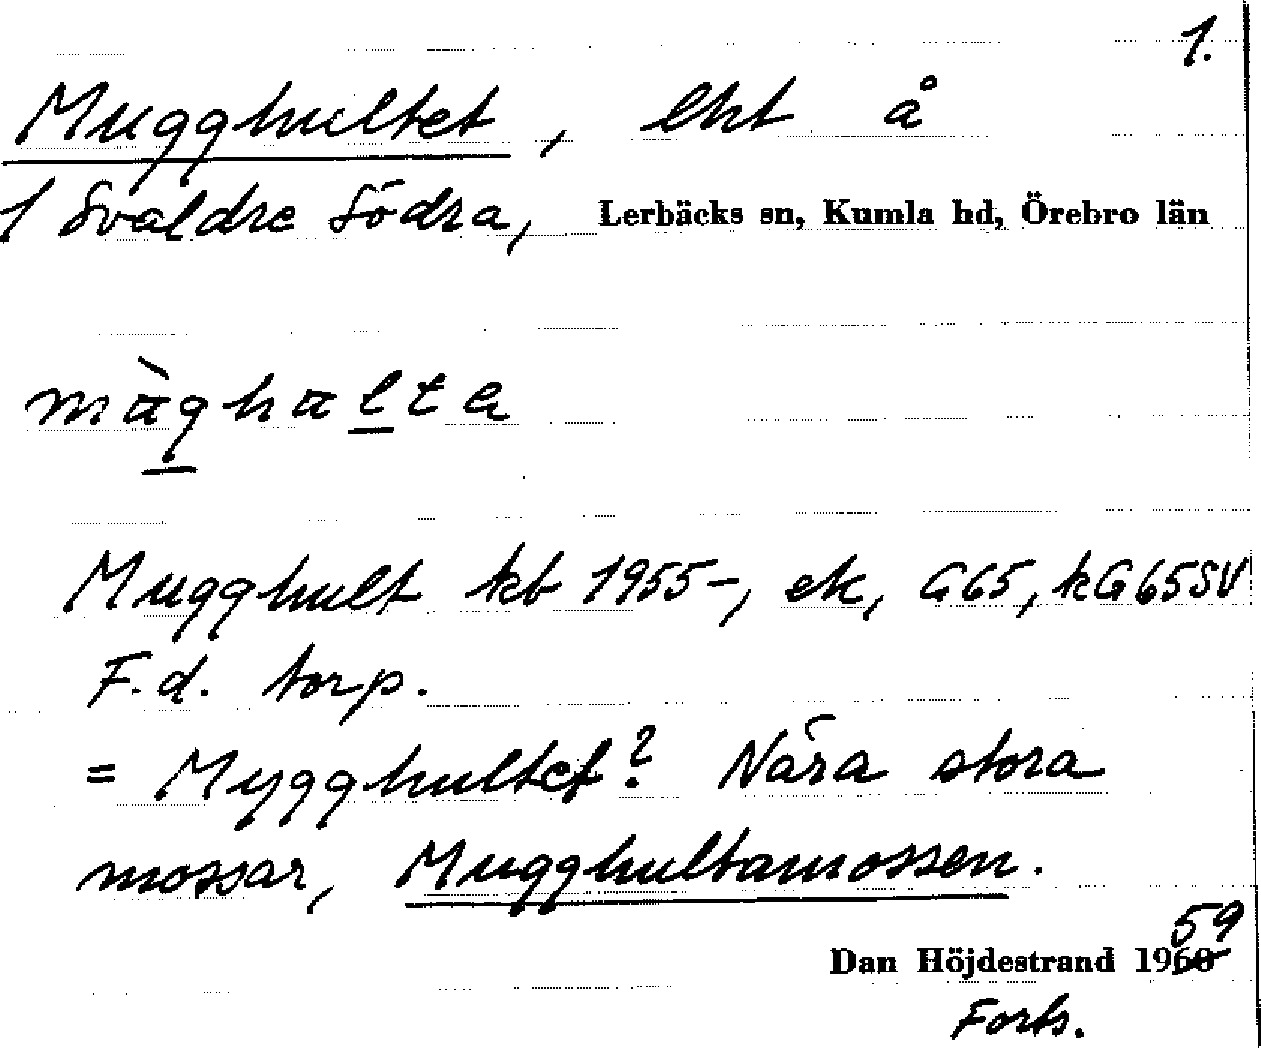 1.
Mugghultet, lht å
1 Svaldre Södra, Lerbäcks sn, Kumla hd, Örebro län
màghalta
Mugghult kb 1955-, ek, G65, kG65SV
F.d. torp.
= Mygghultet? Nära stora
mossar, Mugghultamossen.
59
Dan Höjdestrand 1960
Forts.